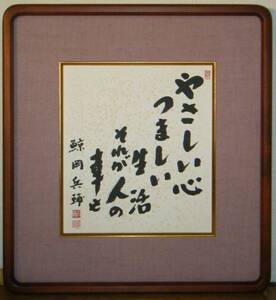 やさしい心
つましい
生活
それが人の
幸せ
鯨岡兵輔